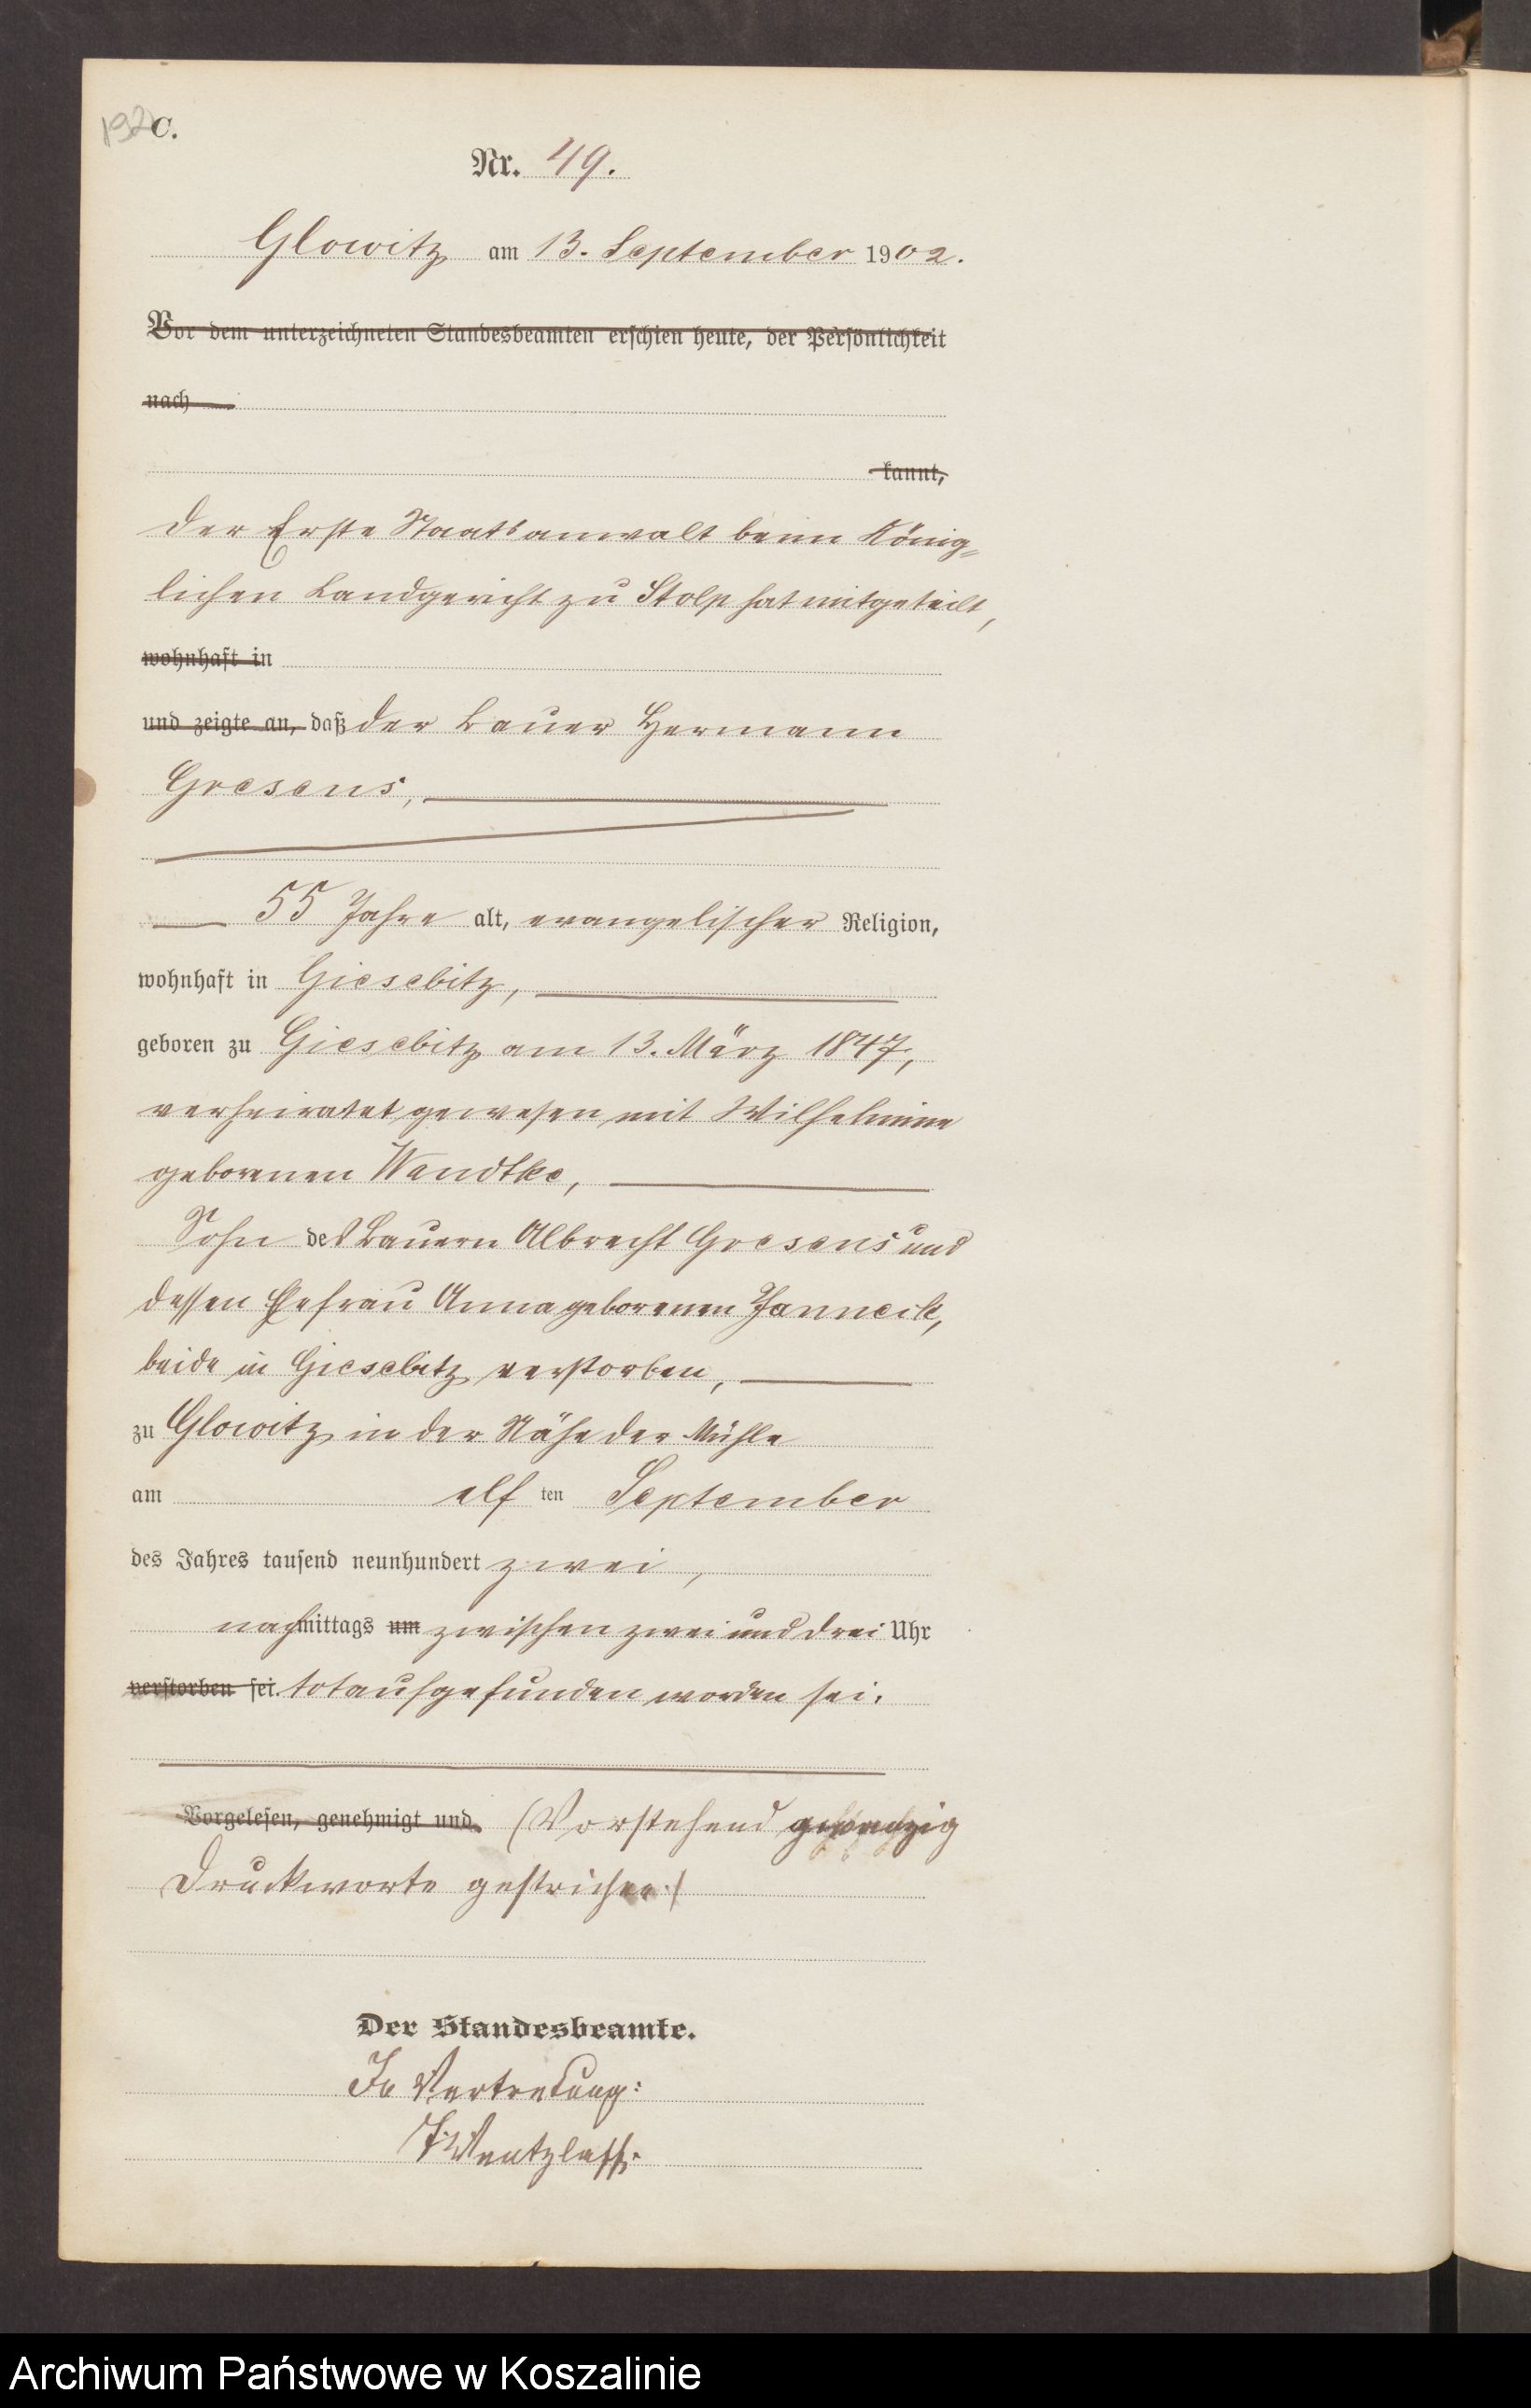 192 C.
Nr. 49.
Glowitz am 13. September 1902.
Vor dem unterzeichneten Standesbeamten erschien heute, der Persönlichkeit
nach
kannt,
der Erste Staatsanwalt beim König-
lichen Landgericht zu Stolp hat mitgeteilt,
wohnhaft in
und zeigte an, daß der Bauer Hermann
Gresens,
55 Jahre alt, evangelischer Religion,
wohnhaft in Giesebitz,
geboren zu Giesebitz am 13. März 1847,
verheiratet gewesen mit Wilhelmine
geborenen Wandtke,
Sohn des Bauern Albrecht Gresens und
dessen Ehefrau Anna geborenen Janneck,
beide in Giesebitz verstorben,
zu Glowitz in der Nähe der Mühle
am elf ten September
des Jahres tausend neunhundert zwei,
nachmittags um zwischen zwei und drei Uhr
verstorben sei. tot aufgefunden worden sei.
Vorgelesen, genehmigt und (Vorstehend
Druckworte gestrichen.)
Der Standesbeamte.
In Vertretung:
Wentzlaff.
Archiwum Państwowe w Koszalinie